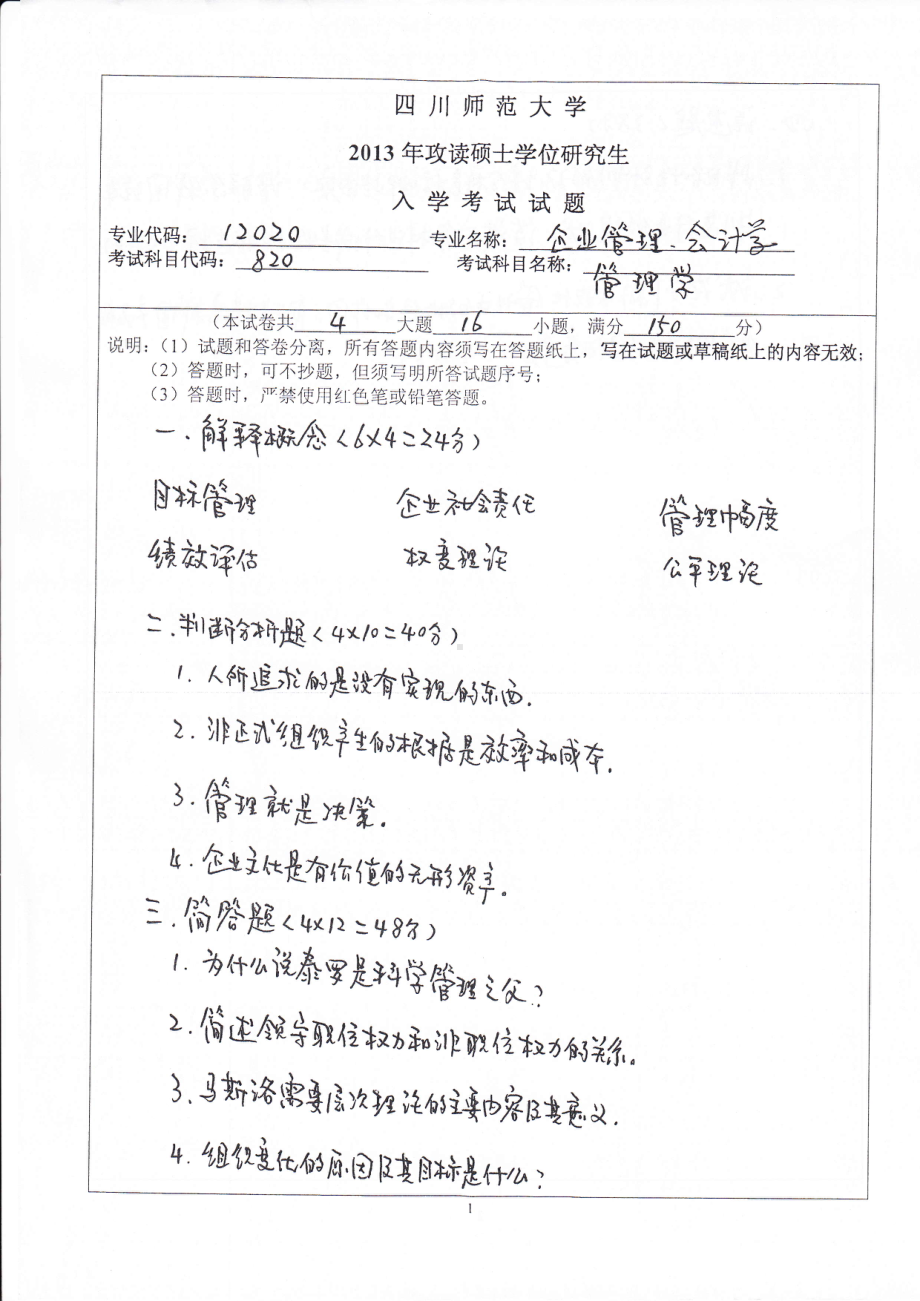 四川师范大学
2013年攻读硕士学位研究生
入学考试试题
专业代码：12020 专业名称：企业管理、会计学
考试科目代码：820 考试科目名称：管理学
（本试卷共 4 大题 16 小题，满分 150 分）
说明：（1）试题和答卷分离，所有答题内容须写在答题纸上，写在试题或草稿纸上的内容无效；
（2）答题时，可不抄题，但须写明所答试题序号；
（3）答题时，严禁使用红色笔或铅笔答题。
一、解释概念（6×4=24分）
目标管理 企业社会责任 管理幅度
绩效评估 权变理论 公平理论
二、判断分析题（4×10=40分）
1. 人所追求的是没有实现的东西.
2. 非正式组织产生的根据是效率和成本.
3. 管理就是决策.
4. 企业文化是有价值的无形资产.
三、简答题（4×12=48分）
1. 为什么说泰罗是科学管理之父？
2. 简述领导职位权力和非职位权力的关系.
3. 马斯洛需要层次理论的主要内容及其意义.
4. 组织变化的原因及其目标是什么？
1